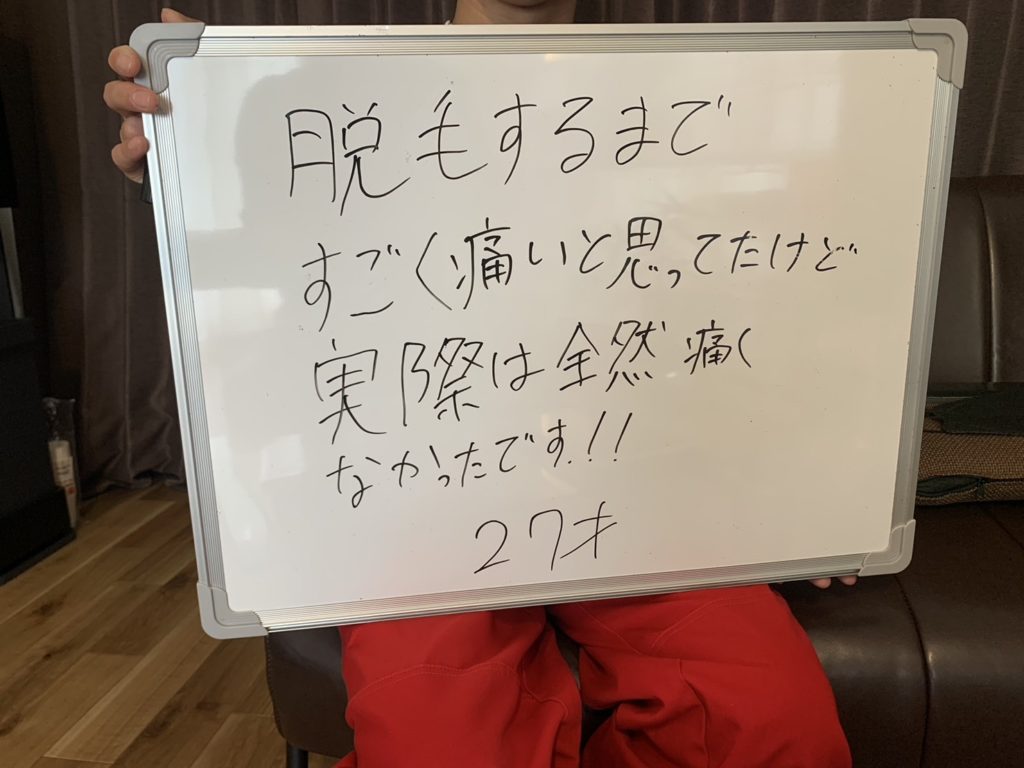 脱毛するまで
すごく痛いと思ってたけど
実際は全然痛く
なかったです.!!
27才